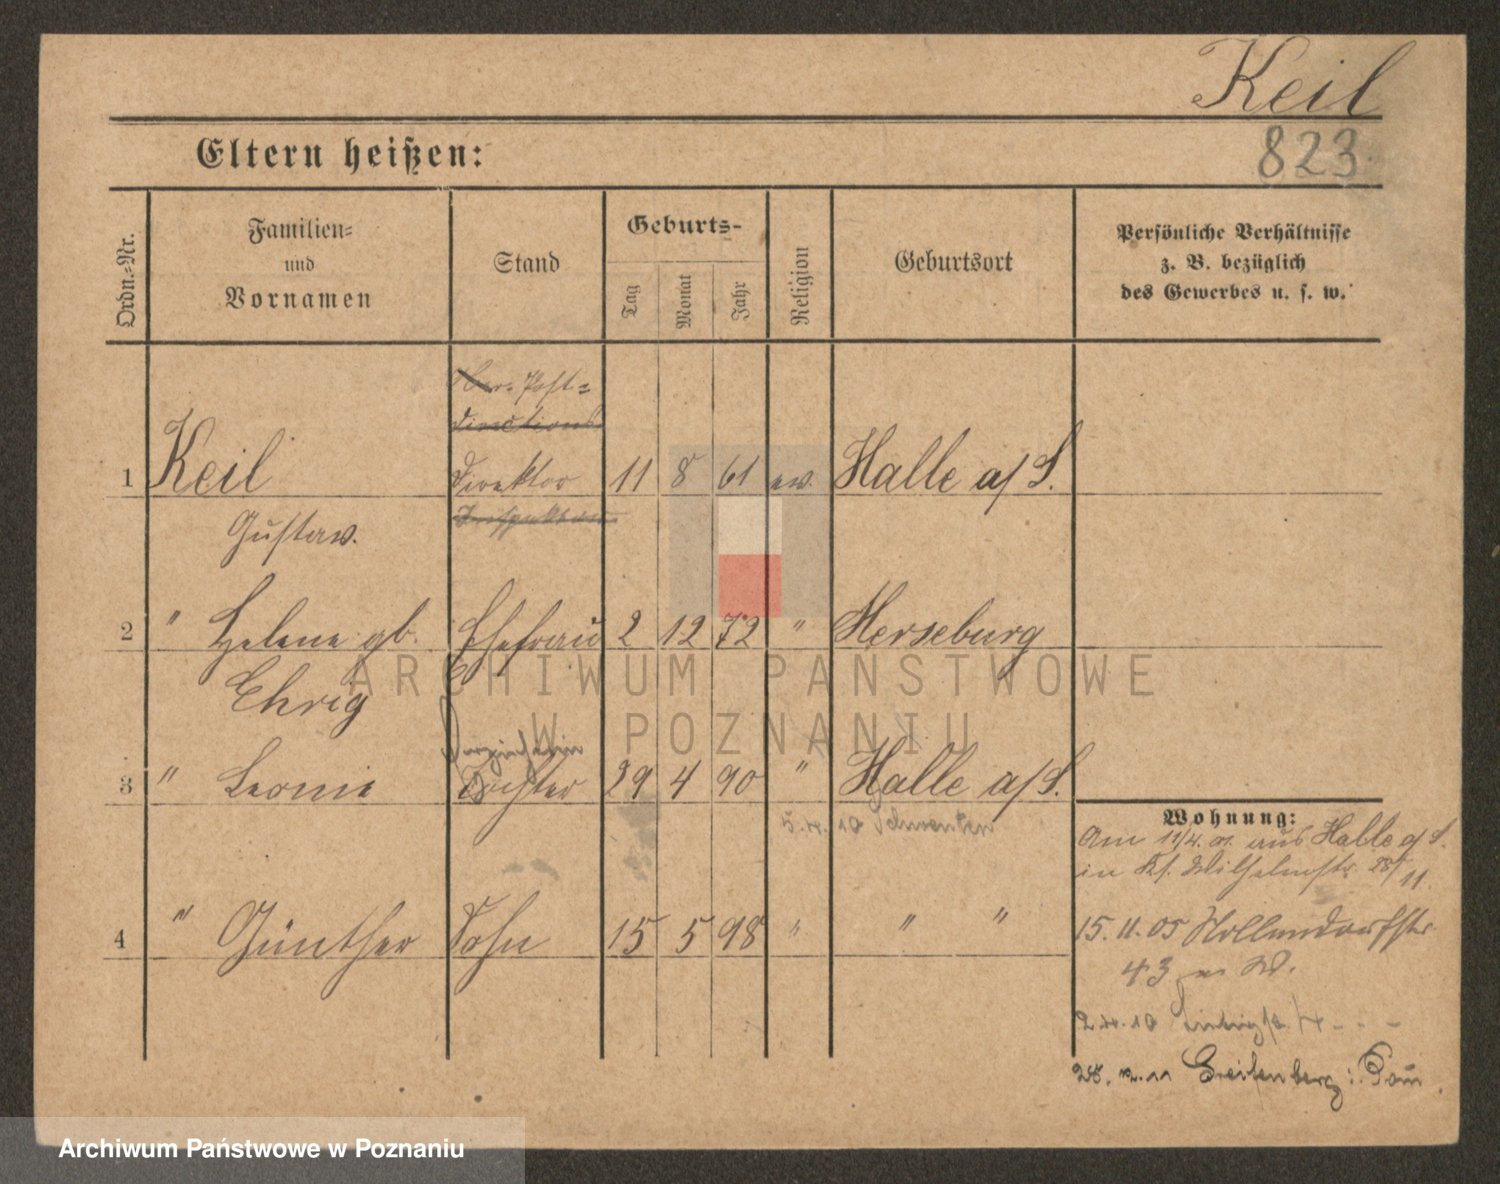 Keil
823
Eltern heißen:
Ordn.-Nr.
Familien-
und
Vornamen
Stand
Geburts-
Tag
Monat
Jahr
Religion
Geburtsort
Persönliche Verhältnisse
z. B. bezüglich
des Gewerbes u. s. w.
Ober-Post-
directions
1 Keil Direktor 11 8 61 ev. Halle a/S.
Gustav. Inspektor
2 " Helene gb. Ehefrau 2 12 72 " Merseburg
Ehrig
3 " Leonie Tochter 29 4 90 " Halle a/S.
5.4.10 Schwenten
4 " Günther Sohn 15 5 98 " " "
Wohnung:
Am 11/4. 01. aus Halle a/S.
in Ks. Wilhelmstr. 28/11.
15.11.05 Nollendorfstr.
43 W.
2.4.10
28.12.11 Greifenberg i. Pom.
ARCHIWUM PAŃSTWOWE
W POZNANIU
Archiwum Państwowe w Poznaniu